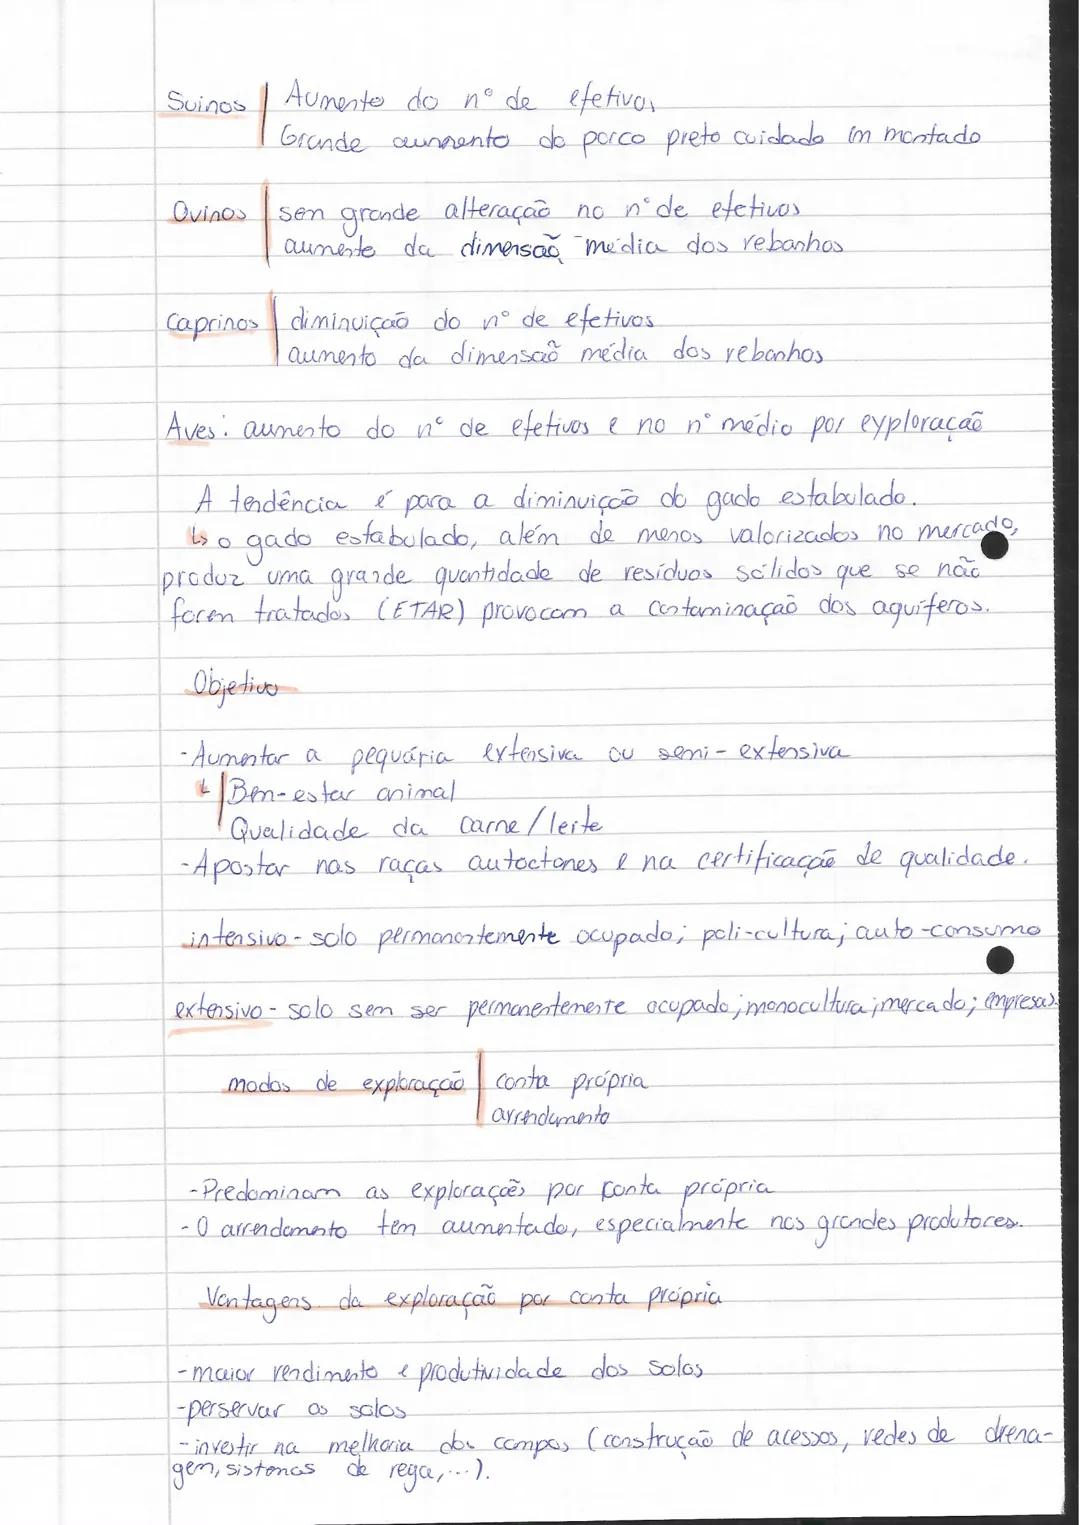 Suinos | Aumento do nº de efetivos
Grande aumento do porco preto cuidado em montado
Ovinos | sem grande alteração no nº de efetivos
aumento da dimensão média dos rebanhos
Caprinos | diminuição do nº de efetivos
aumento da dimensão média dos rebanhos
Aves: aumento do nº de efetivos e no nº médio por exploração
A tendência é para a diminuição do gado estabulado.
↳ o gado estabulado, além de menos valorizados no mercado,
produz uma grande quantidade de resíduos sólidos que se não
forem tratados (ETAR) provocam a contaminação dos aquíferos.
Objetivo
- Aumentar a pequária extensiva ou semi-extensiva
↳ | Bem-estar animal
Qualidade da carne/leite
- Apostar nas raças autoctones e na certificação de qualidade.
intensivo - solo permanentemente ocupado; poli-cultura; auto-consumo
extensivo - solo sem ser permanentemente ocupado; monocultura; mercado; empresas.
modos de exploração | conta própria
arrendamento
- Predominam as explorações por conta própria
- O arrendamento tem aumentado, especialmente nos grandes produtores.
Vantagens da exploração por conta própria
- maior rendimento e produtividade dos solos
- perservar os solos
- investir na melhoria dos campos (construção de acessos, redes de drena-
gem, sistemas de rega,...).